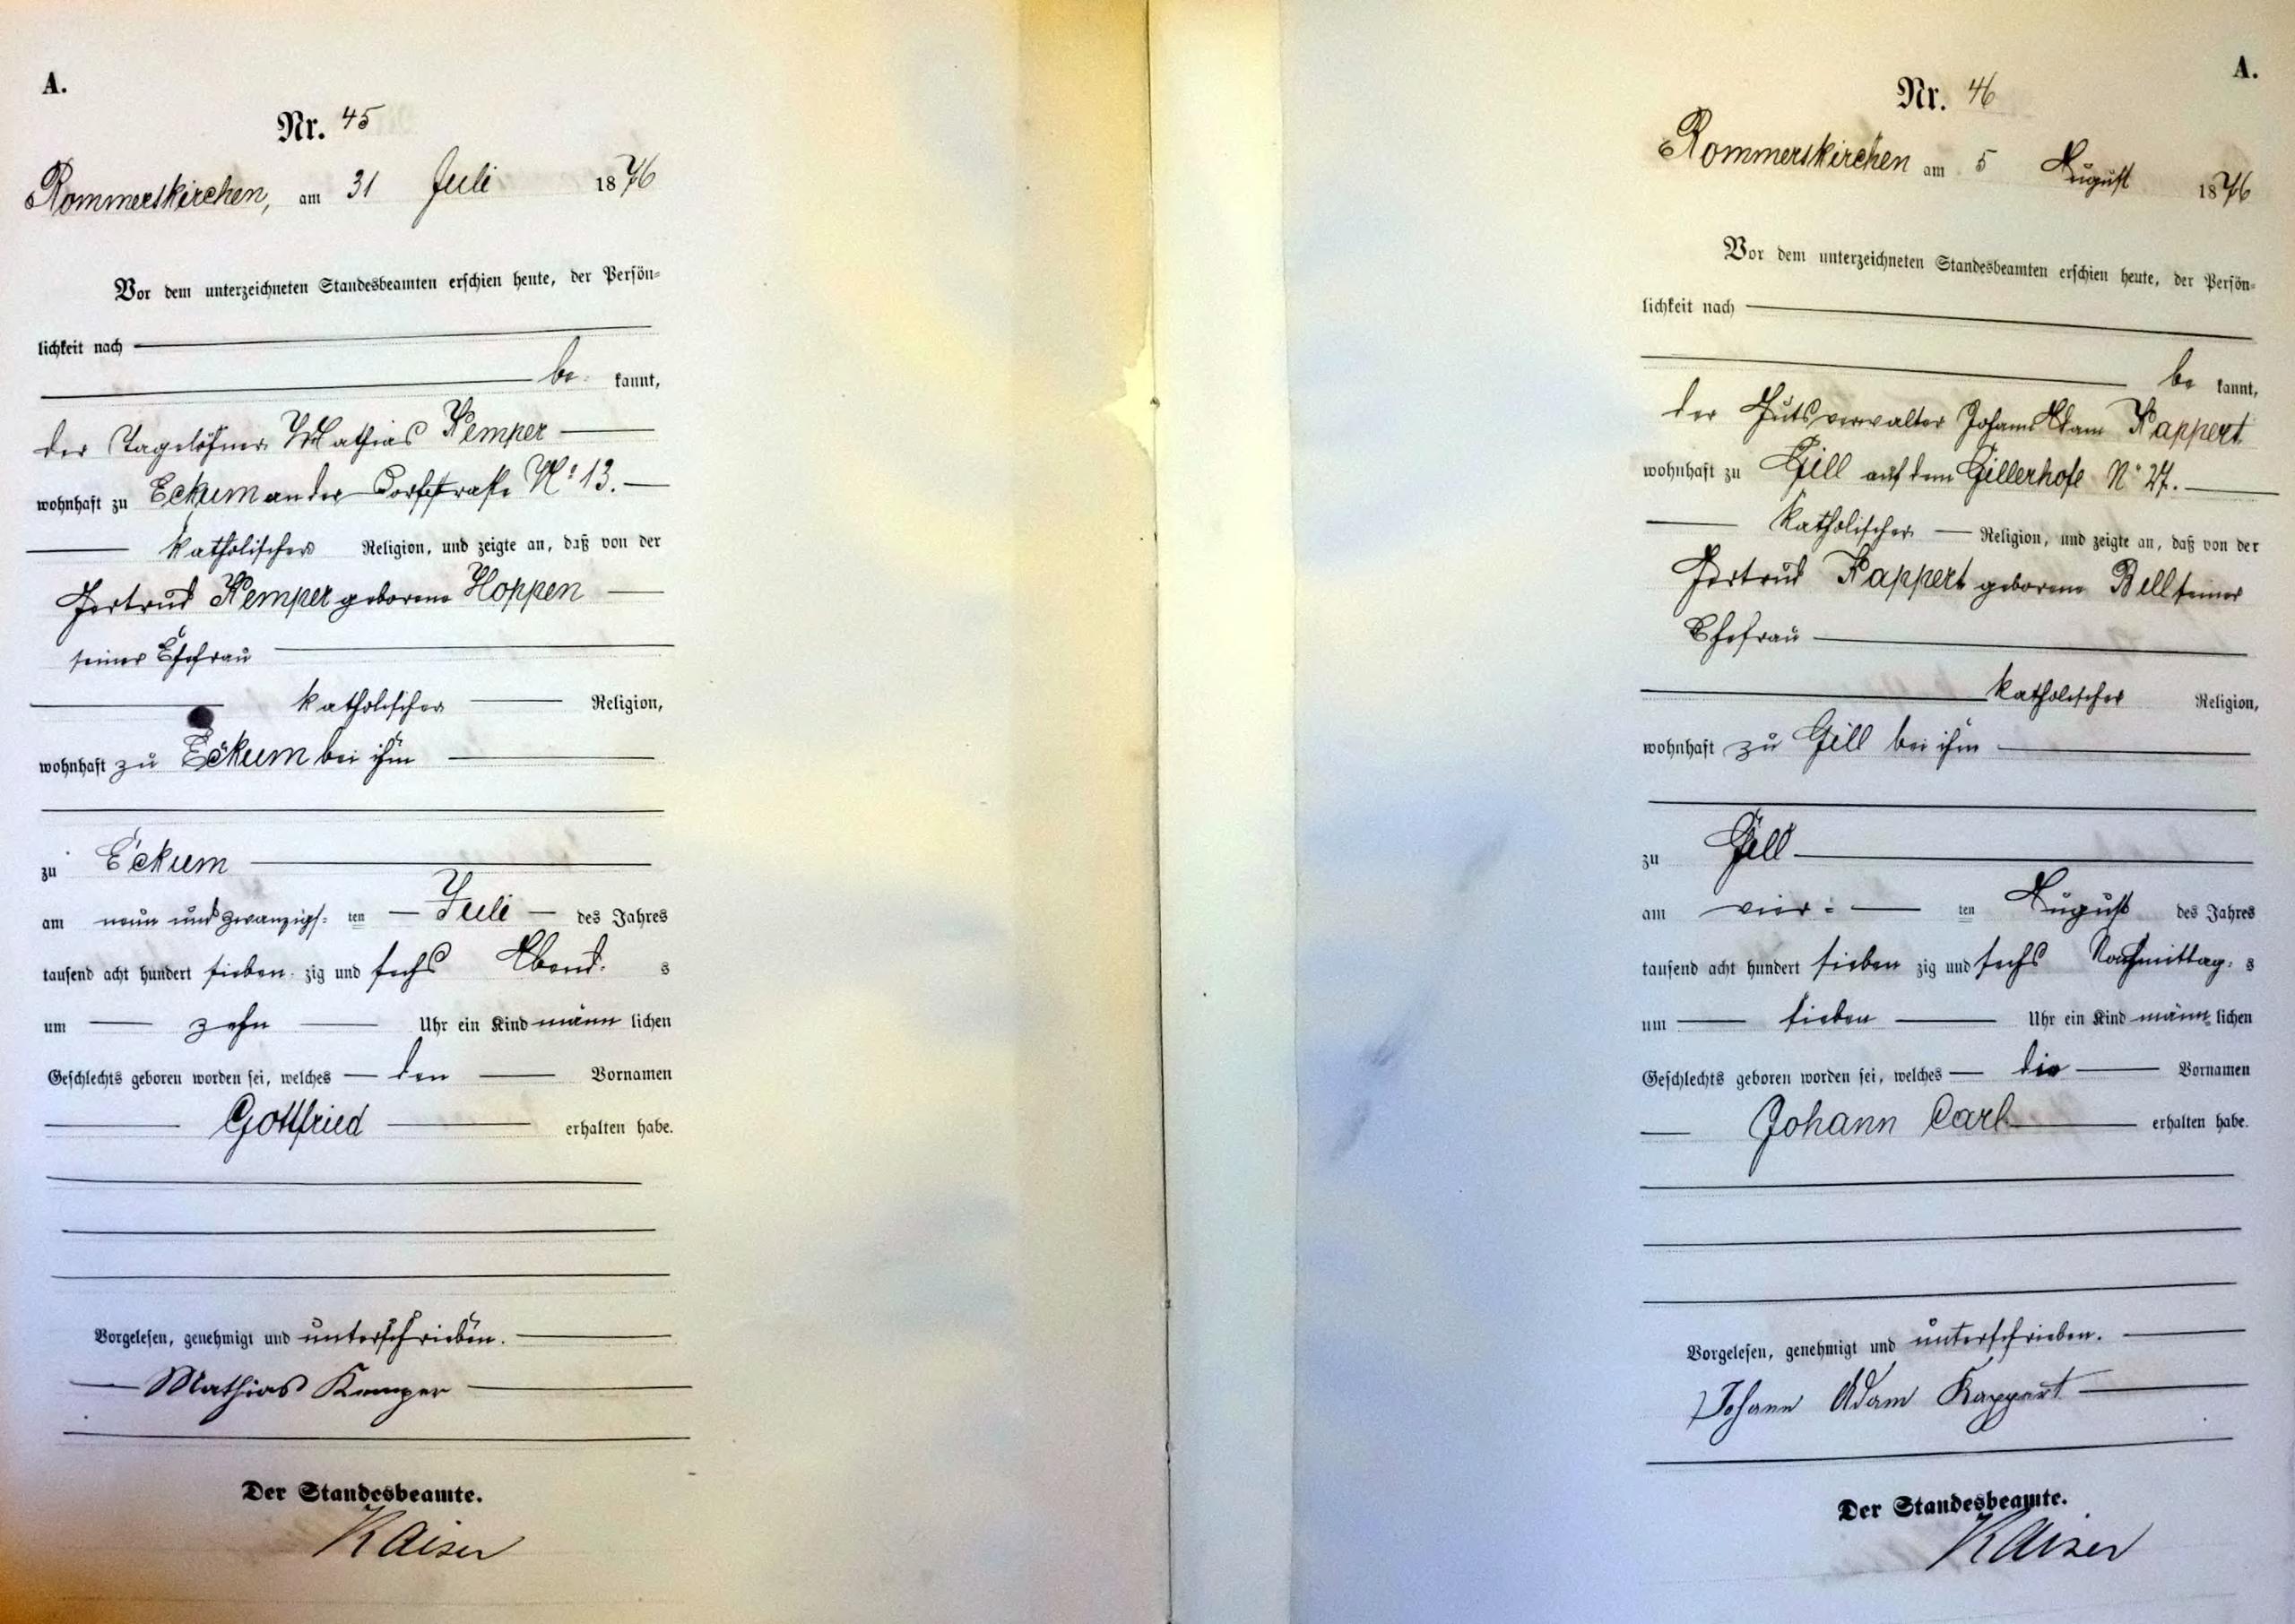 A.
Nr. 45
Rommerskirchen, am 31 Juli 1876
Vor dem unterzeichneten Standesbeamten erschien heute, der Persön-
lichkeit nach
be kannt,
der Tagelöhner Mathias Kemper
wohnhaft zu Eckum an der Dorfstraße No 13.
katholischer Religion, und zeigte an, daß von der
Gertrud Kemper geborene Hoppen
seiner Ehefrau
katholischer Religion,
wohnhaft zu Eckum bei ihm
zu Eckum
am neun und zwanzigs- ten Juli des Jahres
tausend acht hundert sieben zig und sechs Abend- s
um zehn Uhr ein Kind männ lichen
Geschlechts geboren worden sei, welches den Vornamen
Gottfried erhalten habe.
Vorgelesen, genehmigt und unterschrieben.
Mathias Kemper
Der Standesbeamte.
Kaiser
A.
Nr. 46
Rommerskirchen am 5 August 1876
Vor dem unterzeichneten Standesbeamten erschien heute, der Persön-
lichkeit nach
be kannt,
der Gutsverwalter Johann Adam Kappert
wohnhaft zu Gill auf dem Gillerhofe No 27.
katholischer Religion, und zeigte an, daß von der
Gertrud Kappert geborene Bell seiner
Ehefrau
katholischer Religion,
wohnhaft zu Gill bei ihm
zu Gill
am vier- ten August des Jahres
tausend acht hundert sieben zig und sechs Nachmittag- s
um sieben Uhr ein Kind männ- lichen
Geschlechts geboren worden sei, welches die Vornamen
Johann Carl erhalten habe.
Vorgelesen, genehmigt und unterschrieben.
Johann Adam Kappert
Der Standesbeamte.
Kaiser